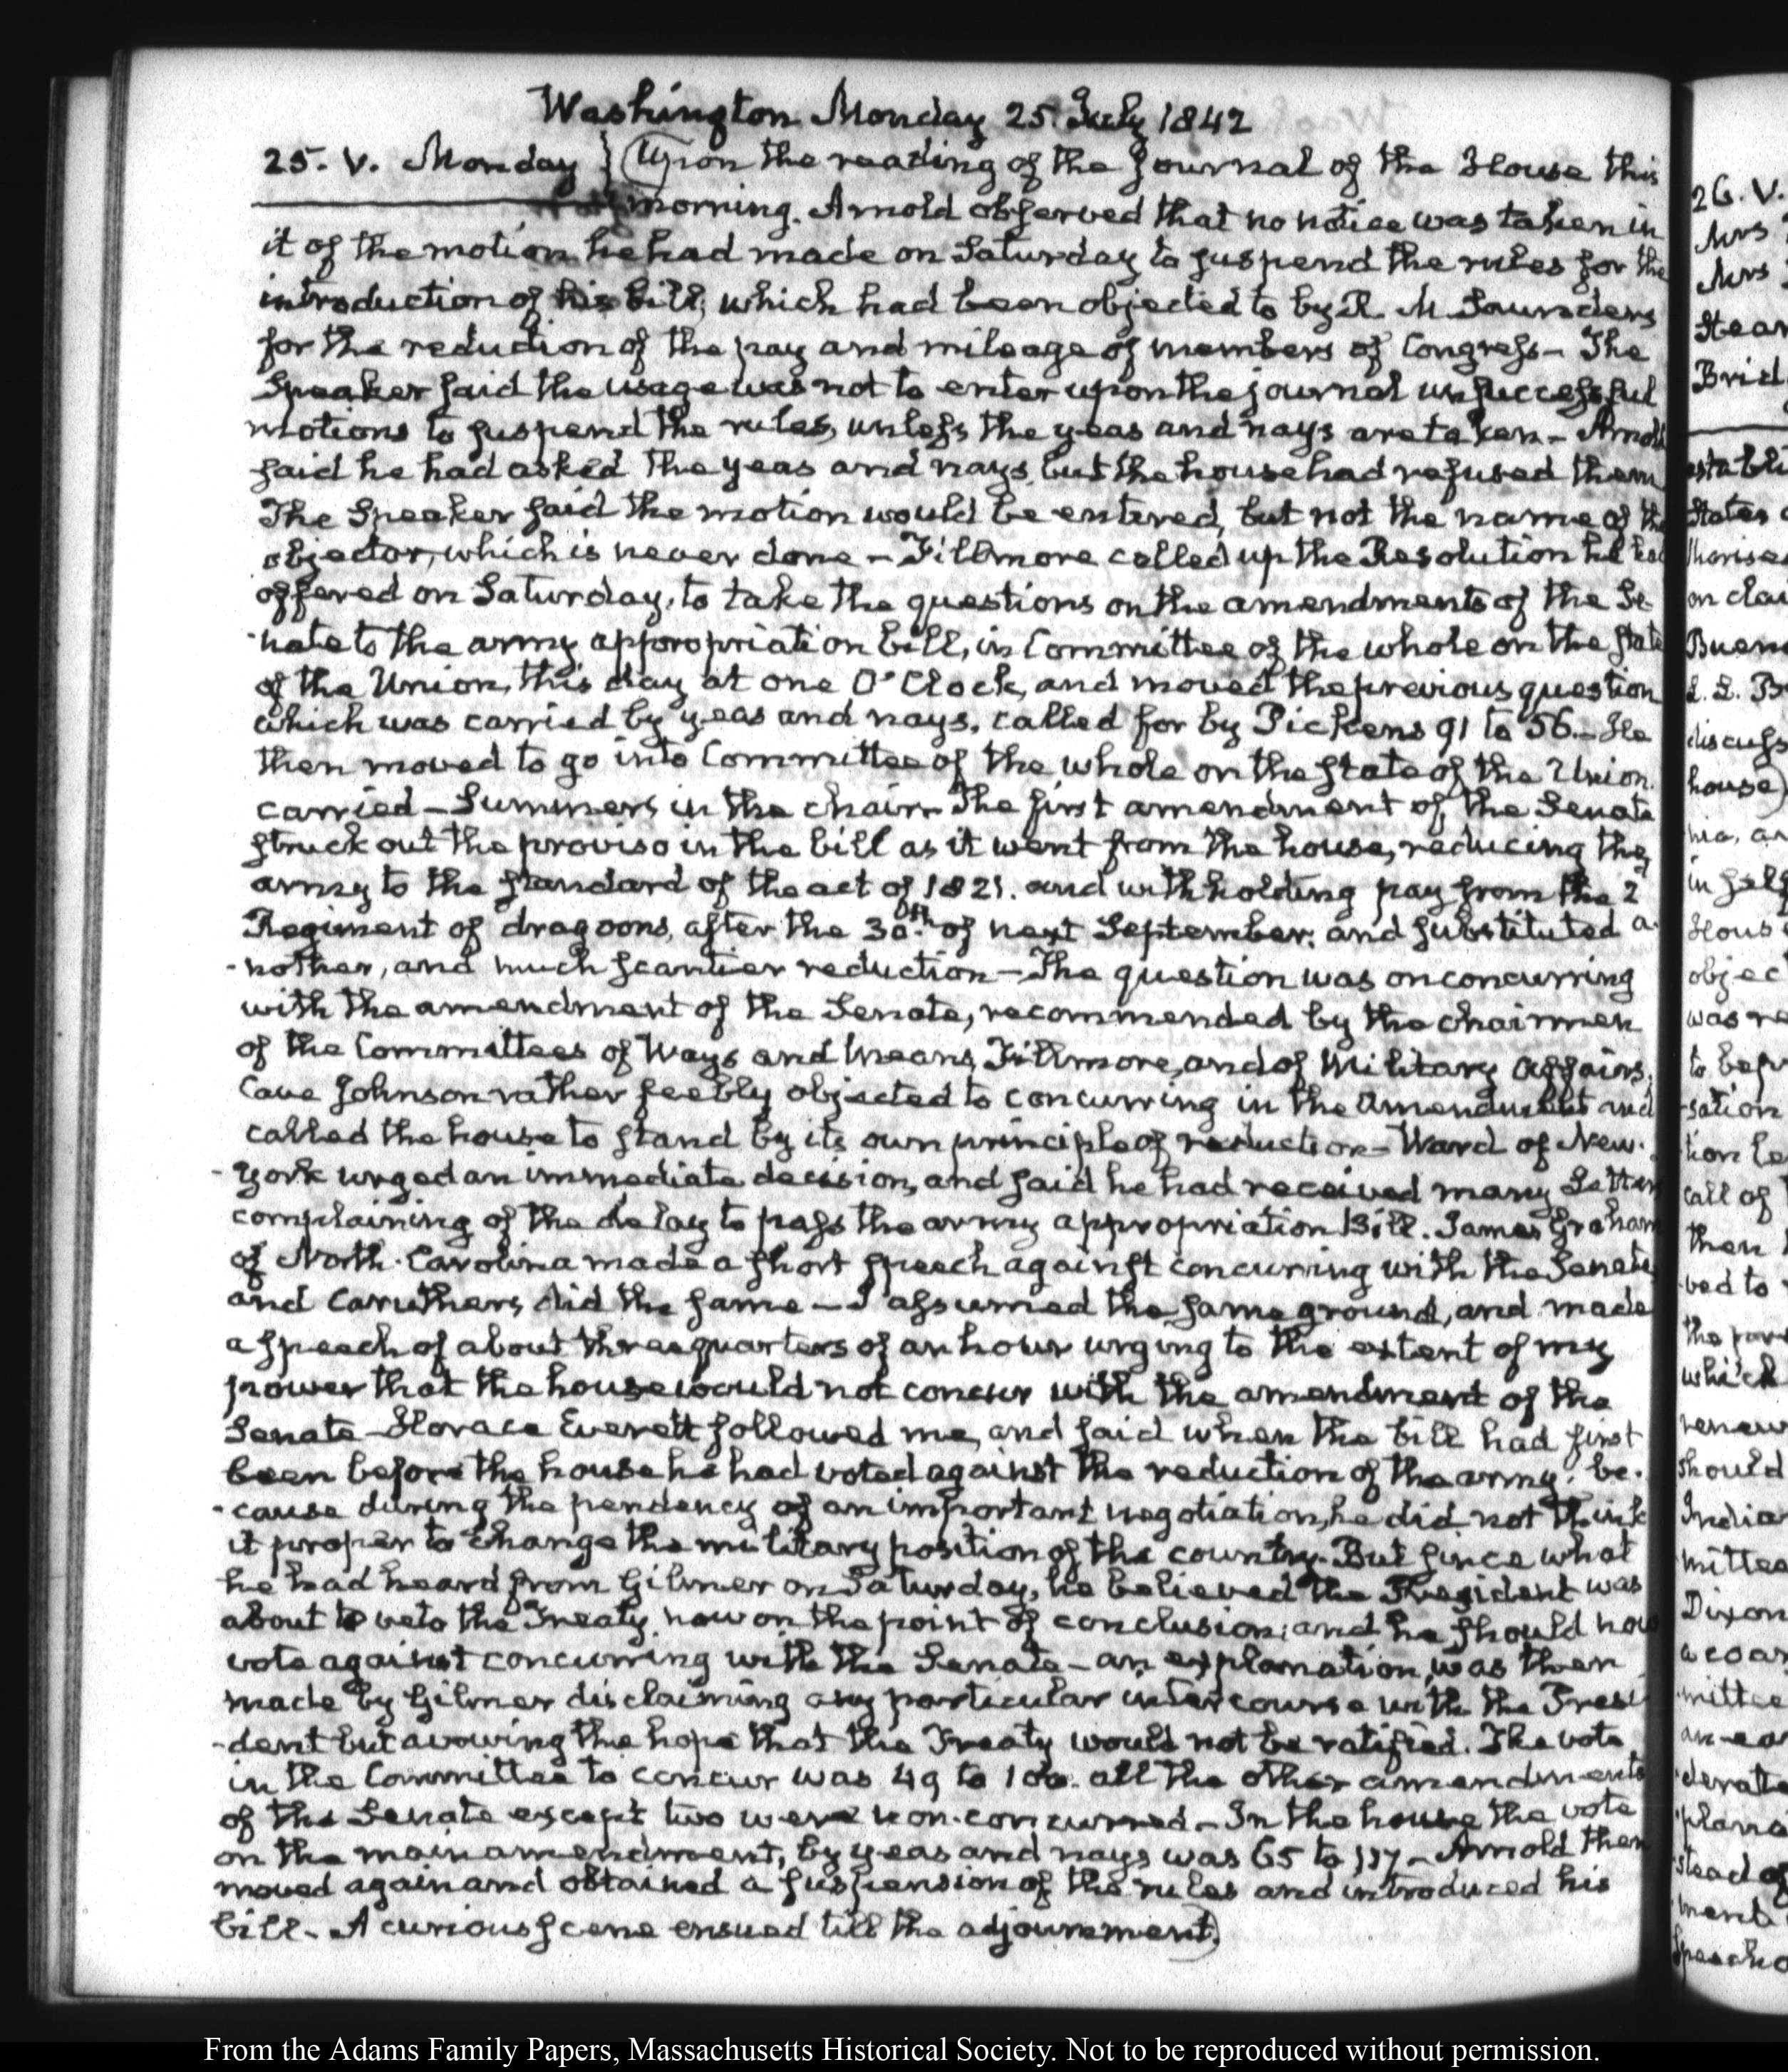 Washington Monday 25. July 1842
25. V. Monday } (Upon the reading of the Journal of the House this
morning. Arnold observed that no notice was taken in
it of the motion he had made on Saturday to suspend the rules for the
introduction of his bill, which had been objected to by R. M Saunders
for the reduction of the pay and mileage of members of Congress– The
Speaker said the usage was not to enter upon the journal unsuccessful
motions to suspend the rules, unless the yeas and nays are taken– Arnold
said he had asked the yeas and nays, but the house had refused them
The Speaker said the motion would be entered, but not the name of the
objector, which is never done– Fillmore called up the Resolution he had
offered on Saturday, to take the questions on the amendments of the Se-
-nate to the army appropriation bill, in Committee of the whole on the State
of the Union, this day at one O'Clock, and moved the previous question
which was carried by yeas and nays, called for by Pickens 91 to 56.– He
then moved to go into Committee of the whole on the State of the Union.
carried– Summers in the chair– The first amendment of the Senate
struck out the proviso in the bill as it went from the house, reducing the
army to the standard of the act of 1821. and withholding pay from the 2d
Regiment of dragoons, after the 30th of next September, and substituted a-
-nother, and much scantier reduction– The question was on concurring
with the amendment of the Senate, recommended by the chairmen
of the Committees of Ways and Means, Fillmore, and of Military Affairs,
Cave Johnson rather feebly objected to concurring in the Amendment and
called the house to stand by its own principle of reduction– Ward of New-
-York urged an immediate decision, and said he had received many Letters
complaining of the delay to pass the army appropriation Bill. James Graham
of North-Carolina made a short speech against concurring with the Senate
and Caruthers, did the same– I assumed the same ground, and made
a speech of about three quarters of an hour urging to the extent of my
power that the house would not concur with the amendment of the
Senate– Horace Everett followed me, and said when the bill had first
been before the house he had voted against the reduction of the army, be-
-cause during the pendency of an important negotiation, he did not think
it proper to change the military position of the country. But since what
he had heard from Gilmer on Saturday, he believed the President was
about to veto the Treaty now on the point of conclusion; and he should now
vote against concurring with the Senate– an explanation, was then
made by Gilmer disclaiming any particular intercourse with the Presi-
-dent but avowing the hope that the Treaty would not be ratified. The vote
in the Committee to concur was 49 to 106. all the other amendments
of the Senate except two were non-concurred– In the house the vote
on the main amendment, by yeas and nays was 65 to 117– Arnold then
moved again and obtained a suspension of the rules and introduced his
bill– A curious scene ensued till the adjournment.)
26. V.
Mrs
Mrs
on
House
objec
was re
call of
then
ved to
which
renew
should
India
mittee
Dixon
a coar
mittee
stead of
ment
From the Adams Family Papers, Massachusetts Historical Society. Not to be reproduced without permission.